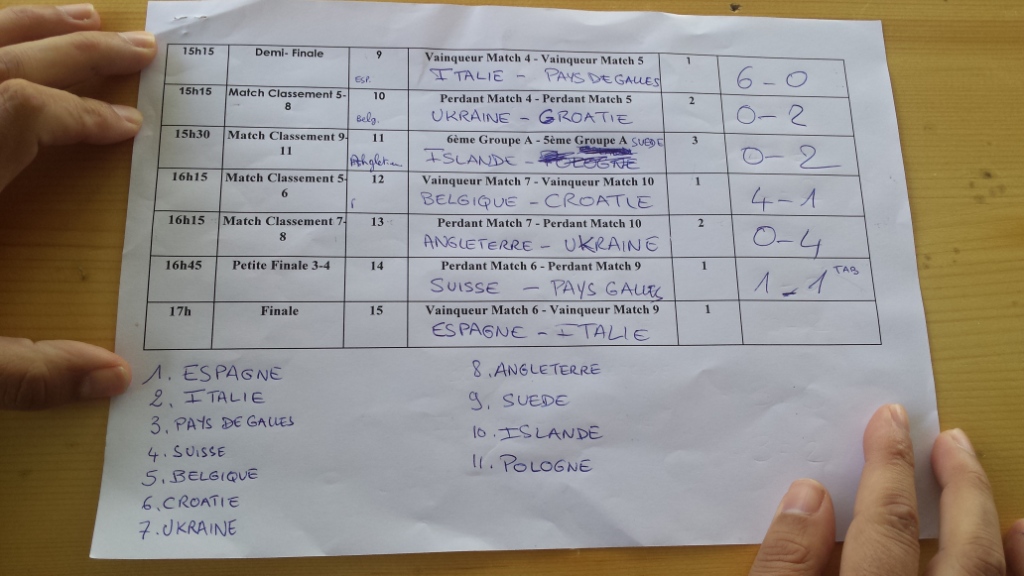 15h15 Demi- Finale 9 Vainqueur Match 4 - Vainqueur Match 5 1
Esp. ITALIE - PAYS DE GALLES 6-0
15h15 Match Classement 5-8 10 Perdant Match 4 - Perdant Match 5 2
Belg. UKRAINE - CROATIE 0-2
15h30 Match Classement 9-11 11 6ème Groupe A - 5ème Groupe A SUEDE 3
ISLANDE - POLOGNE 0-2
16h15 Match Classement 5-6 12 Vainqueur Match 7 - Vainqueur Match 10 1
BELGIQUE - CROATIE 4-1
16h15 Match Classement 7-8 13 Perdant Match 7 - Perdant Match 10 2
ANGLETERRE - UKRAINE 0-4
16h45 Petite Finale 3-4 14 Perdant Match 6 - Perdant Match 9 1
SUISSE - PAYS GALLES 1-1 TAB
17h Finale 15 Vainqueur Match 6 - Vainqueur Match 9 1
ESPAGNE - ITALIE
1. ESPAGNE
2. ITALIE
3. PAYS DE GALLES
4. SUISSE
5. BELGIQUE
6. CROATIE
7. UKRAINE
8. ANGLETERRE
9. SUEDE
10. ISLANDE
11. POLOGNE